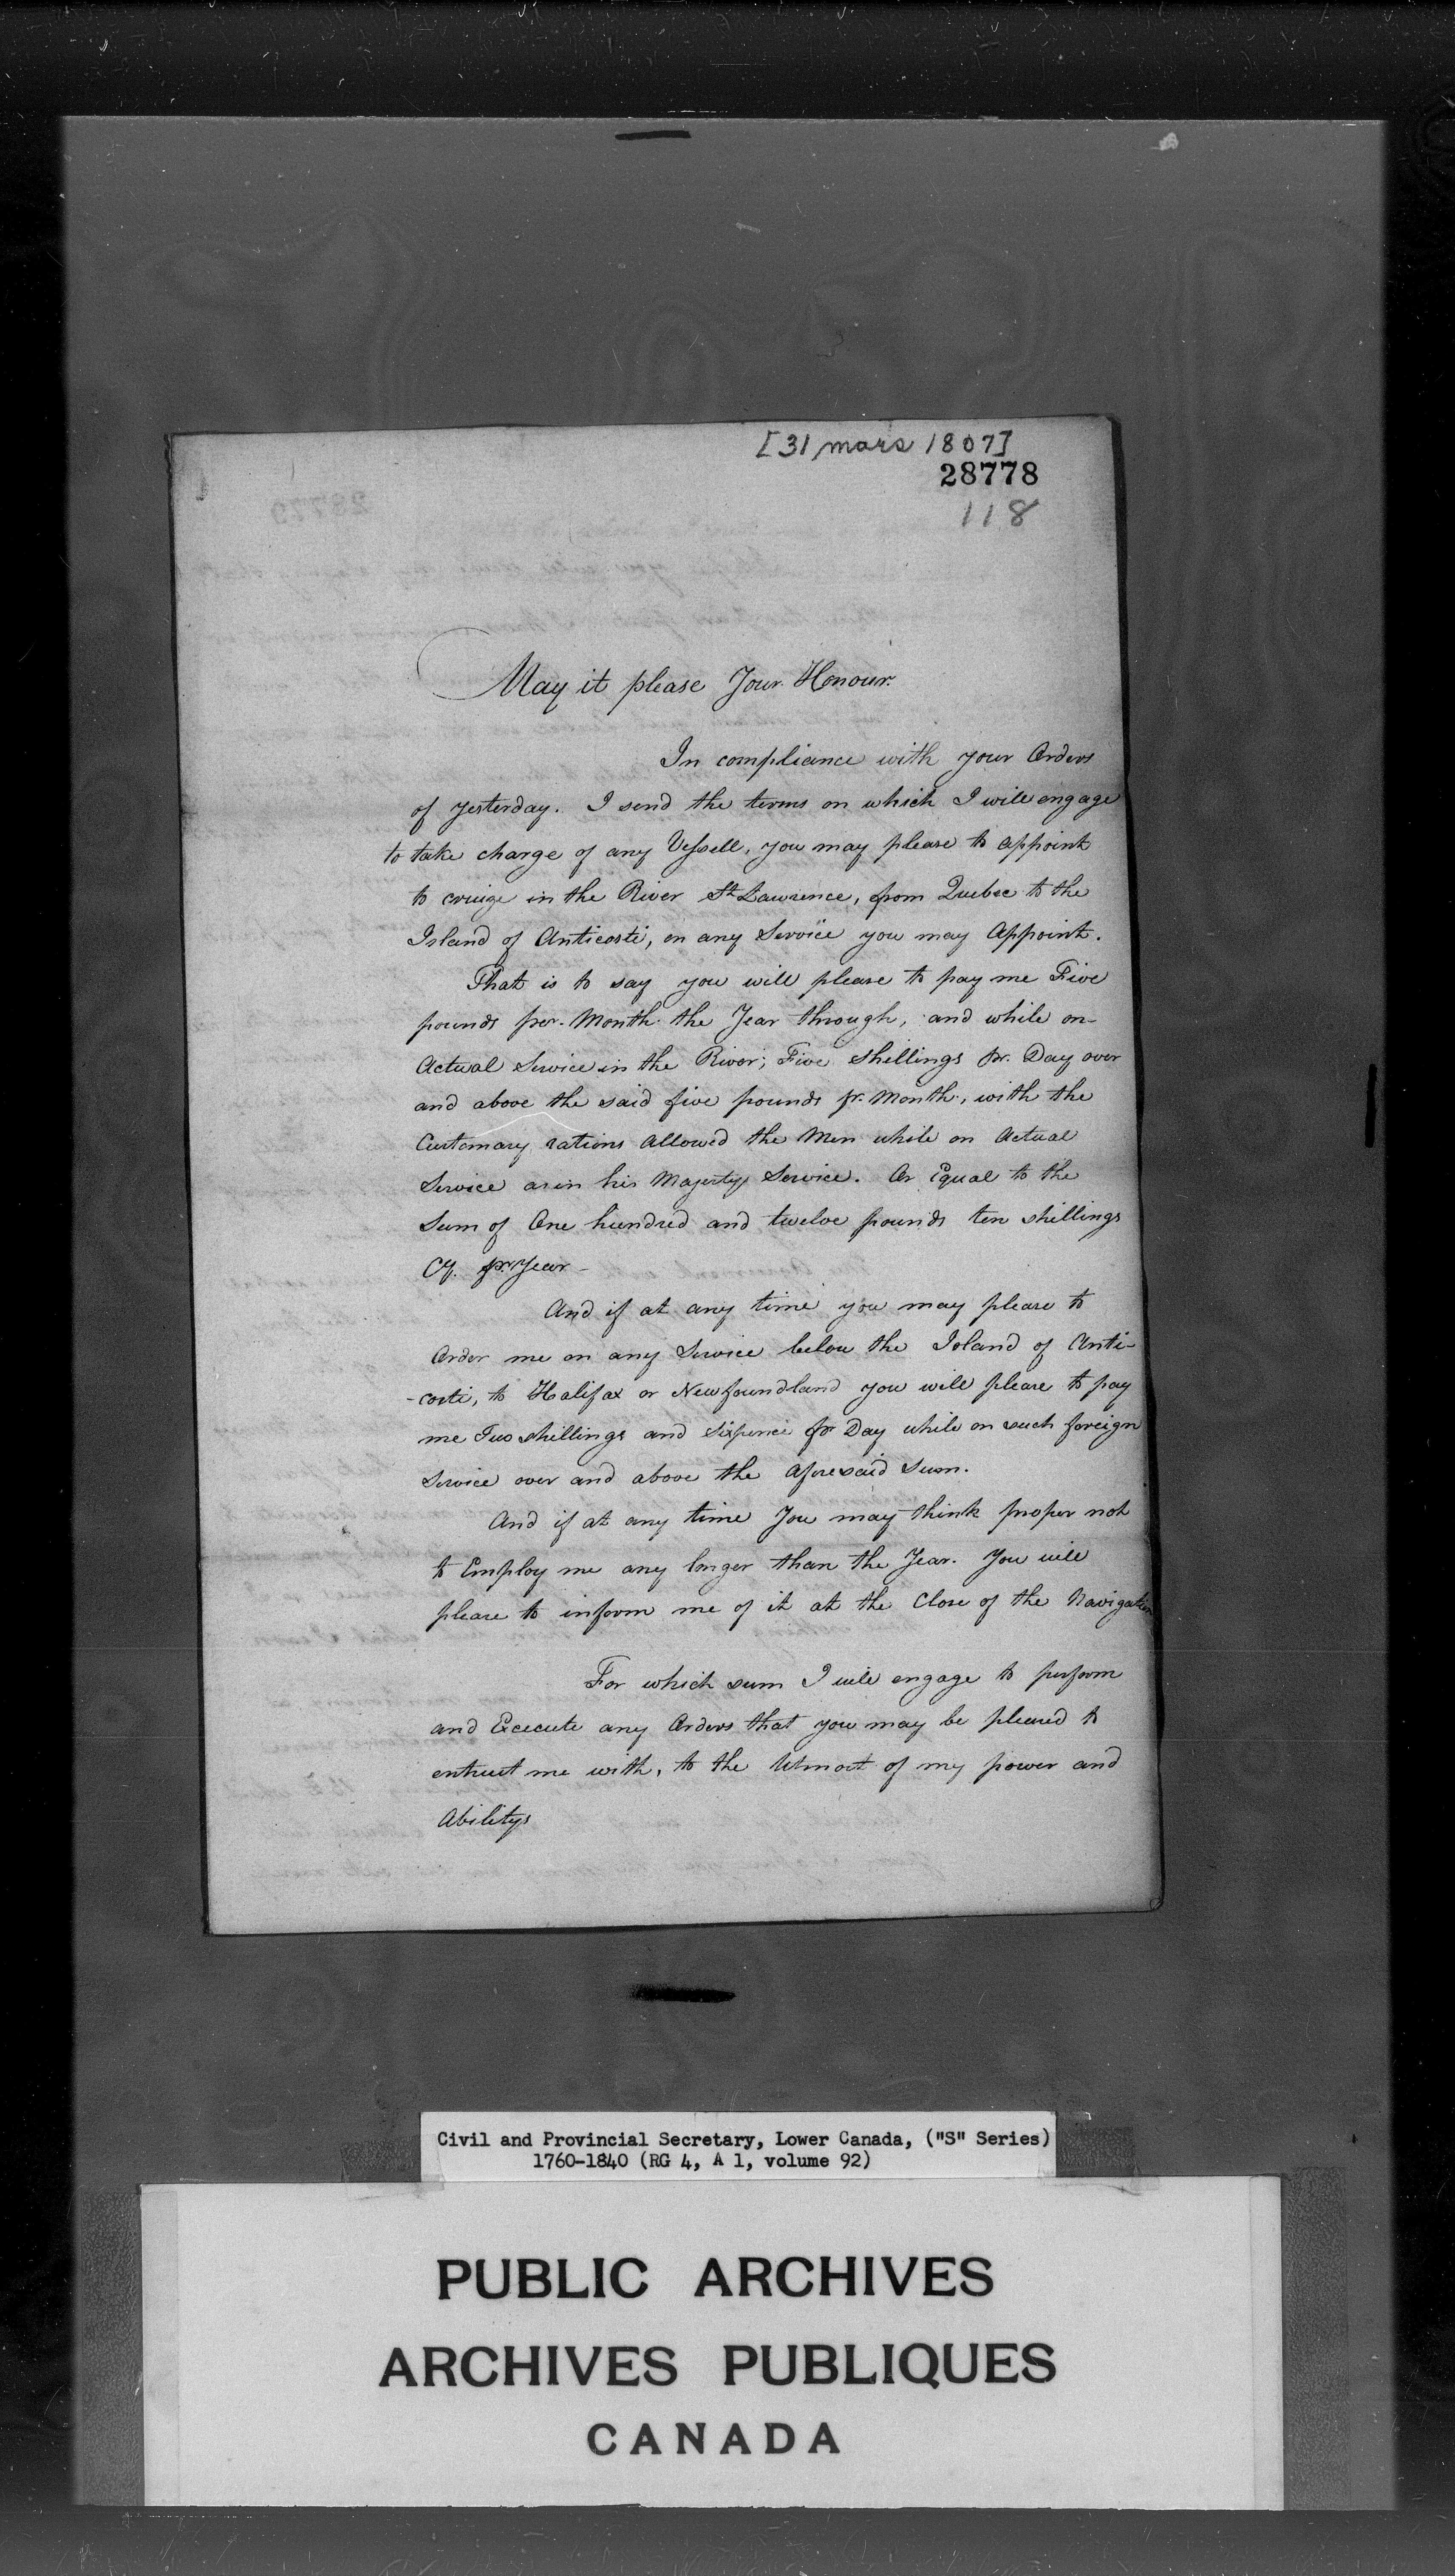 [31 mars 1807]
28778
118
May it please Your Honour.
In compliance with your Orders
of yesterday. I send the terms on which I will engage
to take charge of any Vessell, you may please to appoint
to cruize in the River St Lawrence, from Quebec to the
Island of Anticosti, on any Service you may Appoint.
That is to say you will please to pay me Five
pounds per. Month the Year through, and while on
Actual Service in the River; Five Shillings pr. Day over
and above the said five pounds pr. Month, with the
Customary rations Allowed the Men while on Actual
Service as in his Majestys Service. Or Equal to the
Sum of One hundred and twelve pounds ten shillings
Cy. pr. Year -
And if at any time you may please to
Order me on any Service below the Island of Anti-
-costi, to Halifax or Newfoundland you will please to pay
me Two shillings and Sixpence pr Day while on such foreign
Service over and above the aforesaid Sum.
And if at any time You may think proper not
to Employ me any longer than the Year. You will
please to inform me of it at the Close of the Navigation
For which sum I will engage to perform
and Execute any Orders that you may be pleased to
entrust me with, to the Utmost of my power and
Abilitys
Civil and Provincial Secretary, Lower Canada, ("S" Series)
1760-1840 (RG 4, A 1, volume 92)
PUBLIC ARCHIVES
ARCHIVES PUBLIQUES
CANADA